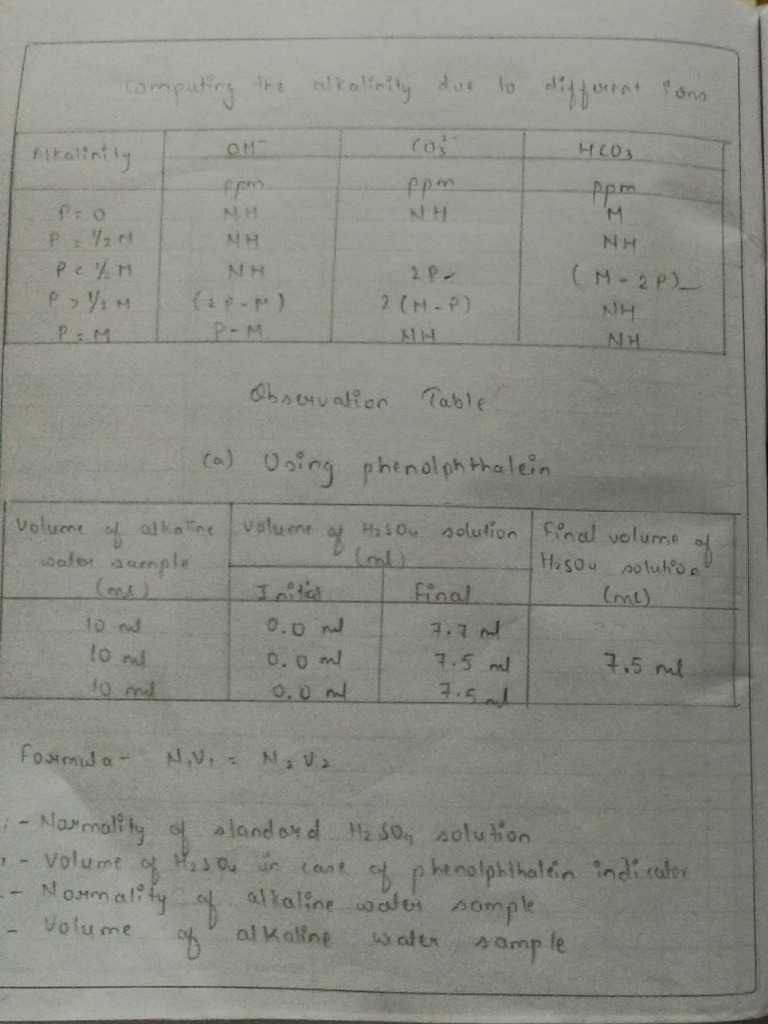 Computing the alkalinity due to different ions
Alkalinity OH⁻ CO₃²⁻ HCO₃
ppm ppm ppm
P = 0 NH NH M
P = 1/2 M NH NH
P < 1/2 M NH 2P (M-2P)
P > 1/2 M (2P-M) 2(M-P) NH
P = M P-M NH NH
Observation Table
(a) Using phenolphthalein
Volume of alkaline water sample (ml)
Volume of H₂SO₄ solution (ml)
Final volume of H₂SO₄ solution (ml)
Initial Final
10 ml 0.0 ml 7.7 ml
10 ml 0.0 ml 7.5 ml 7.5 ml
10 ml 0.0 ml 7.5 ml
Formula - N₁V₁ = N₂V₂
- Normality of standard H₂SO₄ solution
- Volume of H₂SO₄ in case of phenolphthalein indicator
- Normality of alkaline water sample
- Volume of alkaline water sample